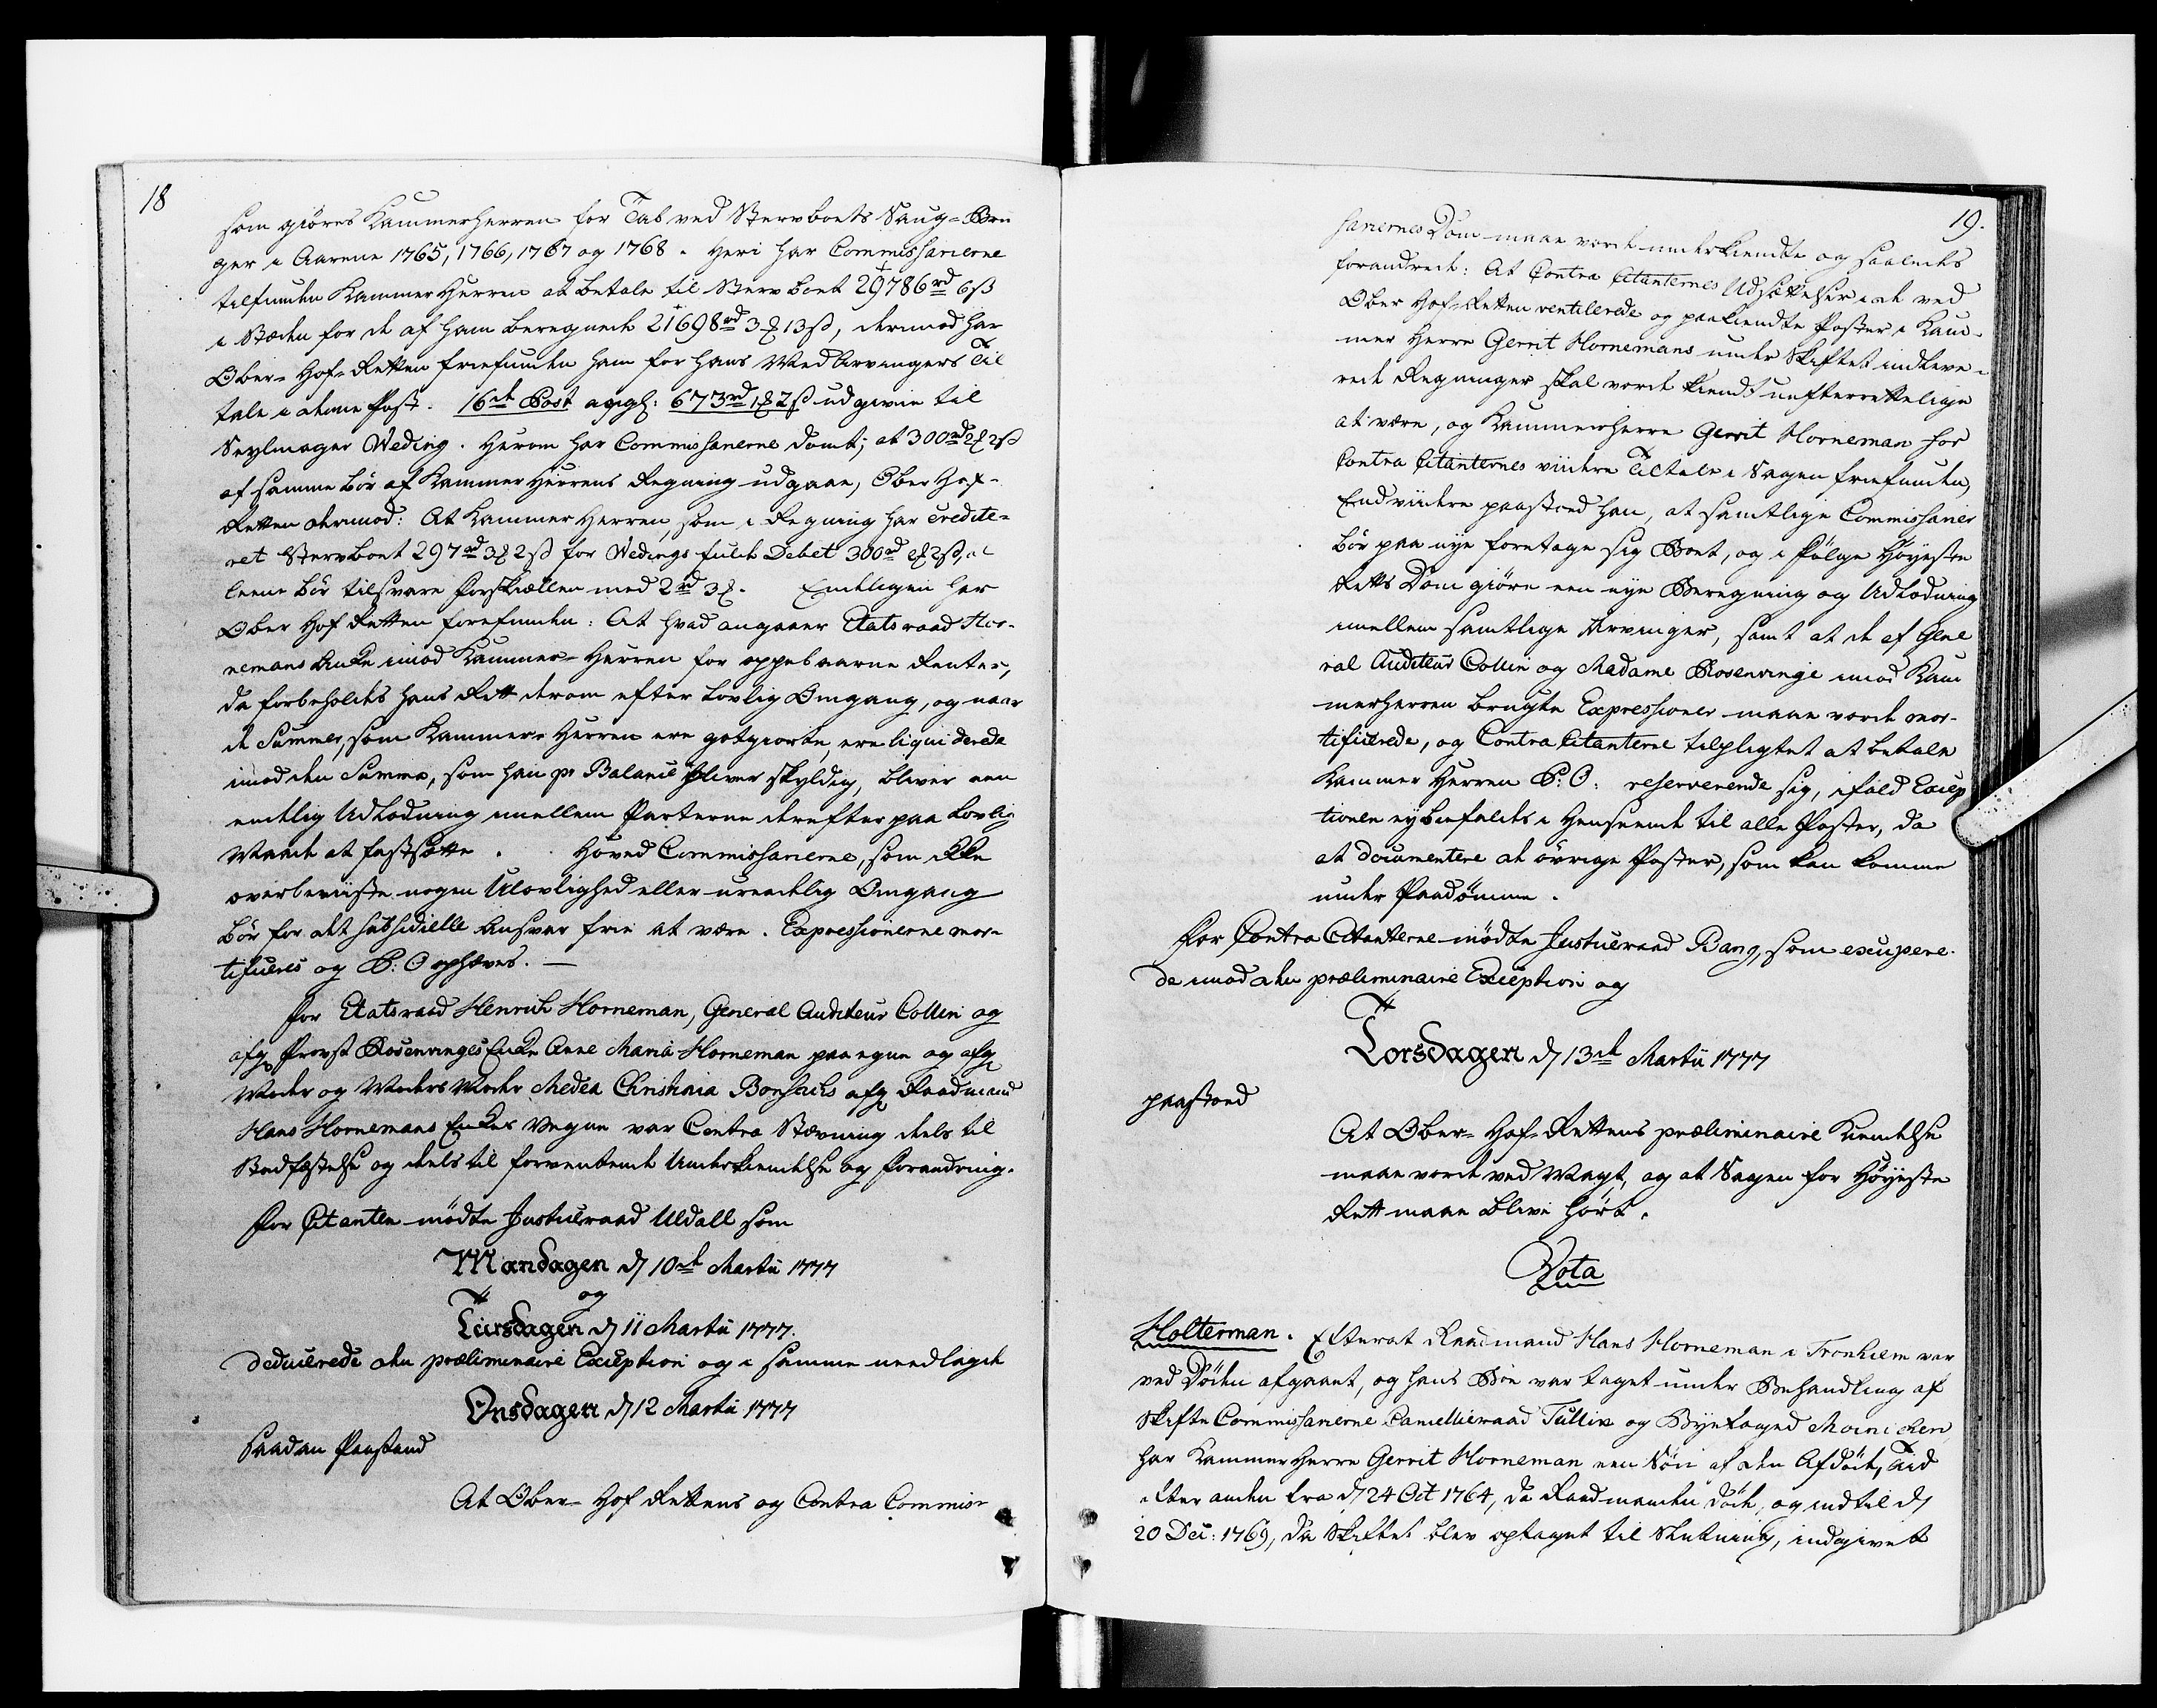 18
som giøres Kammerherren for Tab ved Stervboets Saug-Bru
ger i Aarene 1765, 1766, 1767 og 1768. Heri har Commissarierne
tilfunden Kammer Herren at betale til Stervboet 29786 rd 6 ß
i Stæden for de af ham beregnede 21698 rd 3 ₰ 13 ß, derimod har
Ober-Hof-Retten friefunden ham for hans Medarvingers Til
tale i denne Post. 16de Post angl: 673 rd 1 ₰ 2 ß udgivne til
Seylmager Weding. Herom har Commissarierne dömt; at 300 rd 2 ₰ 2 ß
af samme bör af Kammer Herrens Regning udgaae, Ober Hof-
Retten derimod: At Kammer Herren, som i Regning har credite-
ret Stervboet 297 rd 3 ₰ 2 ß for Wedings fulde Debet 300 rd 2 ₰ 2 ß, al
leene bör tilsvare forskiællen med 2 rd 3 ₰. Endeligen har
Ober Hof Retten forefunden: At hvad angaaer Etatsraad Hor-
nemans Anke imod Kammer-Herren for oppebaarne Renter,
da forbeholdes hans Rett derom efter lovlig Omgang, og naar
de Summer, som Kammer-Herren ere gotgiorte, ere liquiderede
imod den Summa, som han pr Balance bliver skyldig, bliver een
endelig Udlodning imellem Parterne derefter paa lovlig
Maade at fastsætte. Hoved Commissarierne, som ikke
overbeviiste nogen Ulovlighed eller uredelig Omgang
bör for det subsidielle Ansvar frie at være. Expressionerne mor-
tificeres og P: O ophæves. —
For Etatsraad Henrich Horneman, General Auditeur Collin og
afg Provst Rosenvinges Enke Anne Maria Horneman paa egne og afg
Moder og Moders Moder Medea Christina Bonsachs afg Raadmand
Hans Hornemans Enkes Vegne var Contra Stævning deels til
Stadfæstelse og deels til forventende Underkiendelse og forandring.
For Citanten mödte Justicraad Uldall som
Mandagen d 10de Martii 1777
og
Tiirsdagen d 11 Martii 1777.
deducerede den præliminaire Exception og i samme nedlagde
Onsdagen d 12 Martii 1777
saadan Paastand
At Ober-Hof Rettens og Contra Commis-
19.
sariernes Dom maae vorde underkiendte og saaledes
forandrede: At Contra Citanternes Udsættelser i de ved
Ober Hof-Retten ventillerede og paakiendte Poster i Kam-
mer Herre Gerrit Hornemans under Skiftet indleve-
rede Regninger skal vorde kiendt uefterrettelige
at være, og Kammerherre Gerrit Horneman for
Contra Citanternes viidere Tiltale i Sagen friefunden,
Endviidere paastoed han, at samtlige Commissarier
bör paa nye foretage sig Boet, og i Fölge Höyeste
Retts Dom giöre een nye Beregning og Udlodning
imellem samtlige Arvinger, samt at de af Gene
ral Auditeur Collin og Madame Rosenvinge imod Kam
merherren brugte Expressioner maae vorde mor-
tificerede, og Contra Citanterne tilpligtet at betale
Kammer Herren P: O: reserverende sig, ifald Excep
tionen ey bifaldes i Henseende til alle Poster, da
at documentere de övrige Poster, som kan komme
under Paadömme.
For Contra Citanterne mödte Justicraad Bang, som excipere-
de imod den præliminaire Exception og
Torsdagen d 13de Martii 1777
paastoed
At Ober-Hof-Rettens præliminaire Kiendelse
maae vorde ved Magt, og at Sagen for Höyeste
Rett maae blive hört.
Vota
Holterman. Efterat Raadmand Hans Horneman i Tronhiem var
ved Döden afgaaet, og hans Boe var taget under Behandling af
Skifte Commissarierne Cancellieraad Tullin og Byefoged Moinichen,
har Kammer Herre Gerrit Horneman een Sön af den Afdöde, Tid
efter anden fra d 24 Oct 1764, da Raadmanden döde, og indtil d
20 Dec: 1769, da Skiftet blev optaget til Slutning, indgivet